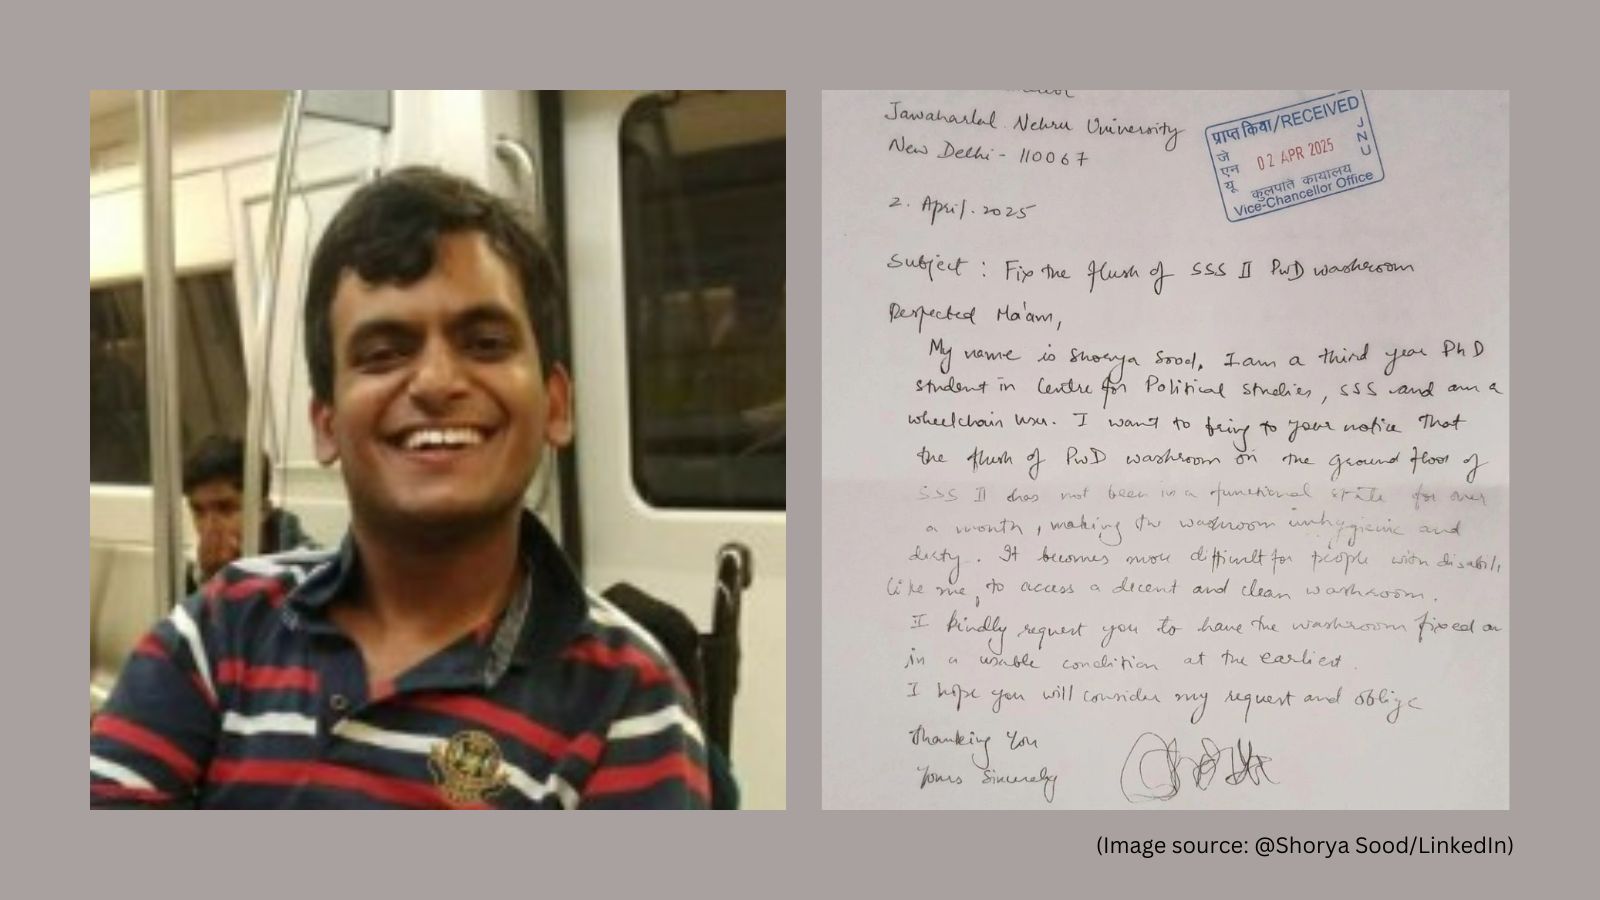 Jawaharlal Nehru University
New Delhi - 110067
प्राप्त किया/RECEIVED
जे एन यू
02 APR 2025
J N U
कुलपति कार्यालय
Vice-Chancellor Office
2. April. 2025
Subject : Fix the flush of SSS II PwD washroom
Respected Ma'am,
My name is Shorya Sood. I am a third year PhD
student in Centre for Political Studies, SSS and am a
wheelchair user. I want to bring to your notice that
the flush of PwD washroom on the ground floor of
SSS II has not been in a functional state for over
a month, making the washroom unhygienic and
dirty. It becomes more difficult for people with disabili
like me, to access a decent and clean washroom.
I kindly request you to have the washroom fixed
in a usable condition at the earliest.
I hope you will consider my request and oblige
Thanking You
Yours Sincerely
(Image source: @Shorya Sood/LinkedIn)